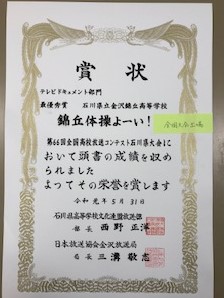 賞状
テレビドキュメント部門
最優秀賞 石川県立金沢錦丘高等学校
錦丘体操よーい!
全国大会出場
第66回全国高校放送コンテスト石川県大会に
おいて頭書の成績を収め
られました
よってその栄誉を賞します
令和元年5月31日
石川県高等学校文化連盟放送部
部長 西野正洋
日本放送協会金沢放送局
局長 三溝敬志